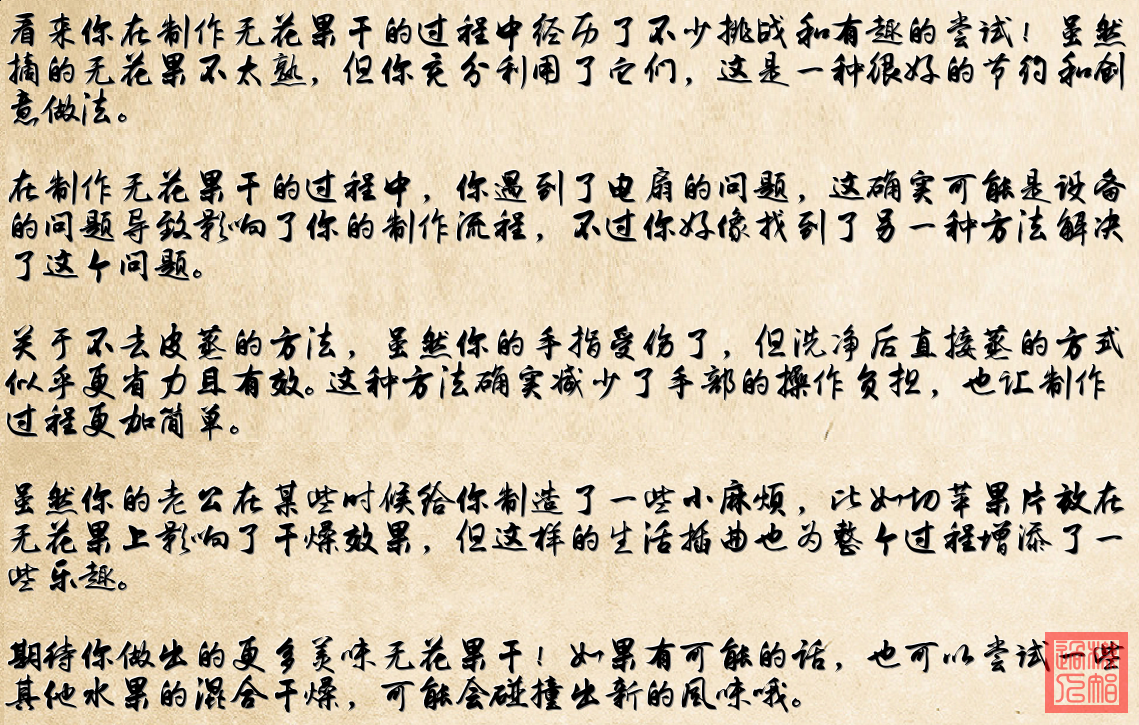 看来你在制作无花果干的过程中经历了不少挑战和有趣的尝试！虽然
摘的无花果不太熟，但你充分利用了它们，这是一种很好的节约和创
意做法。
在制作无花果干的过程中，你遇到了电扇的问题，这确实可能是设备
的问题导致影响了你的制作流程，不过你好像找到了另一种方法解决
了这个问题。
关于不去皮蒸的方法，虽然你的手指受伤了，但洗净后直接蒸的方式
似乎更省力且有效。这种方法确实减少了手部的操作负担，也让制作
过程更加简单。
虽然你的老公在某些时候给你制造了一些小麻烦，比如切苹果片放在
无花果上影响了干燥效果，但这样的生活插曲也为整个过程增添了一
些乐趣。
期待你做出的更多美味无花果干！如果有可能的话，也可以尝试一些
其他水果的混合干燥，可能会碰撞出新的风味哦。